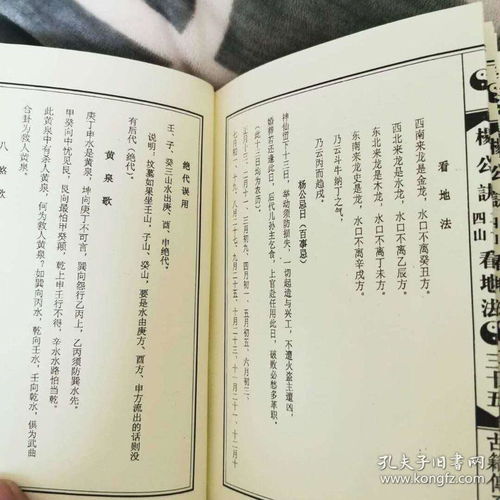 杨公訣 四山 看地法 三十五
看地法
西南来龙是金龙，水口不离癸丑方。
西北来龙是水龙，水口不离乙辰方。
东北来龙是木龙，水口不离丁未方。
东南来龙是龙，水口不离辛戌方。
乃云斗牛纳丁之气，
乃云丙而趋戌。
杨公忌日（百事忌）
神仙留下十三日，举动须防损失，一切起造与兴工，不遭火盗主遭凶，
婚标若还逢此日，后代儿孙主乞食，上官赴任用此日，破败必愁多革职。
（此十三日均为农历）
正月十三、二月十一、三月初九、四月初七、五月初五、六月初三、
七月初一、十九、八月二十七、九月二十五、十月二十三、十一月二十一、十二月十
绝代误用
壬、子、癸三山水出庚、酉、申绝代。
说明，坟墓如果坐壬山，子山、癸山，要是水由庚方、酉方、申方流出的话则没
有后代（绝代）。
黄泉歌
庚丁申水是黄泉，坤向庚丁不可言，巽向怨行乙丙上，乙丙须防巽水先。
甲癸向中忧见艮，艮向最怕甲癸颠，乾上申壬行不得，辛水水路怕当乾。
此黄泉中有杀人黄泉，何为救人黄泉？如巽向丙水，乾向壬水，壬向乾水，俱为武曲
合卦为救人黄泉。
八煞歌
孔夫子旧书网